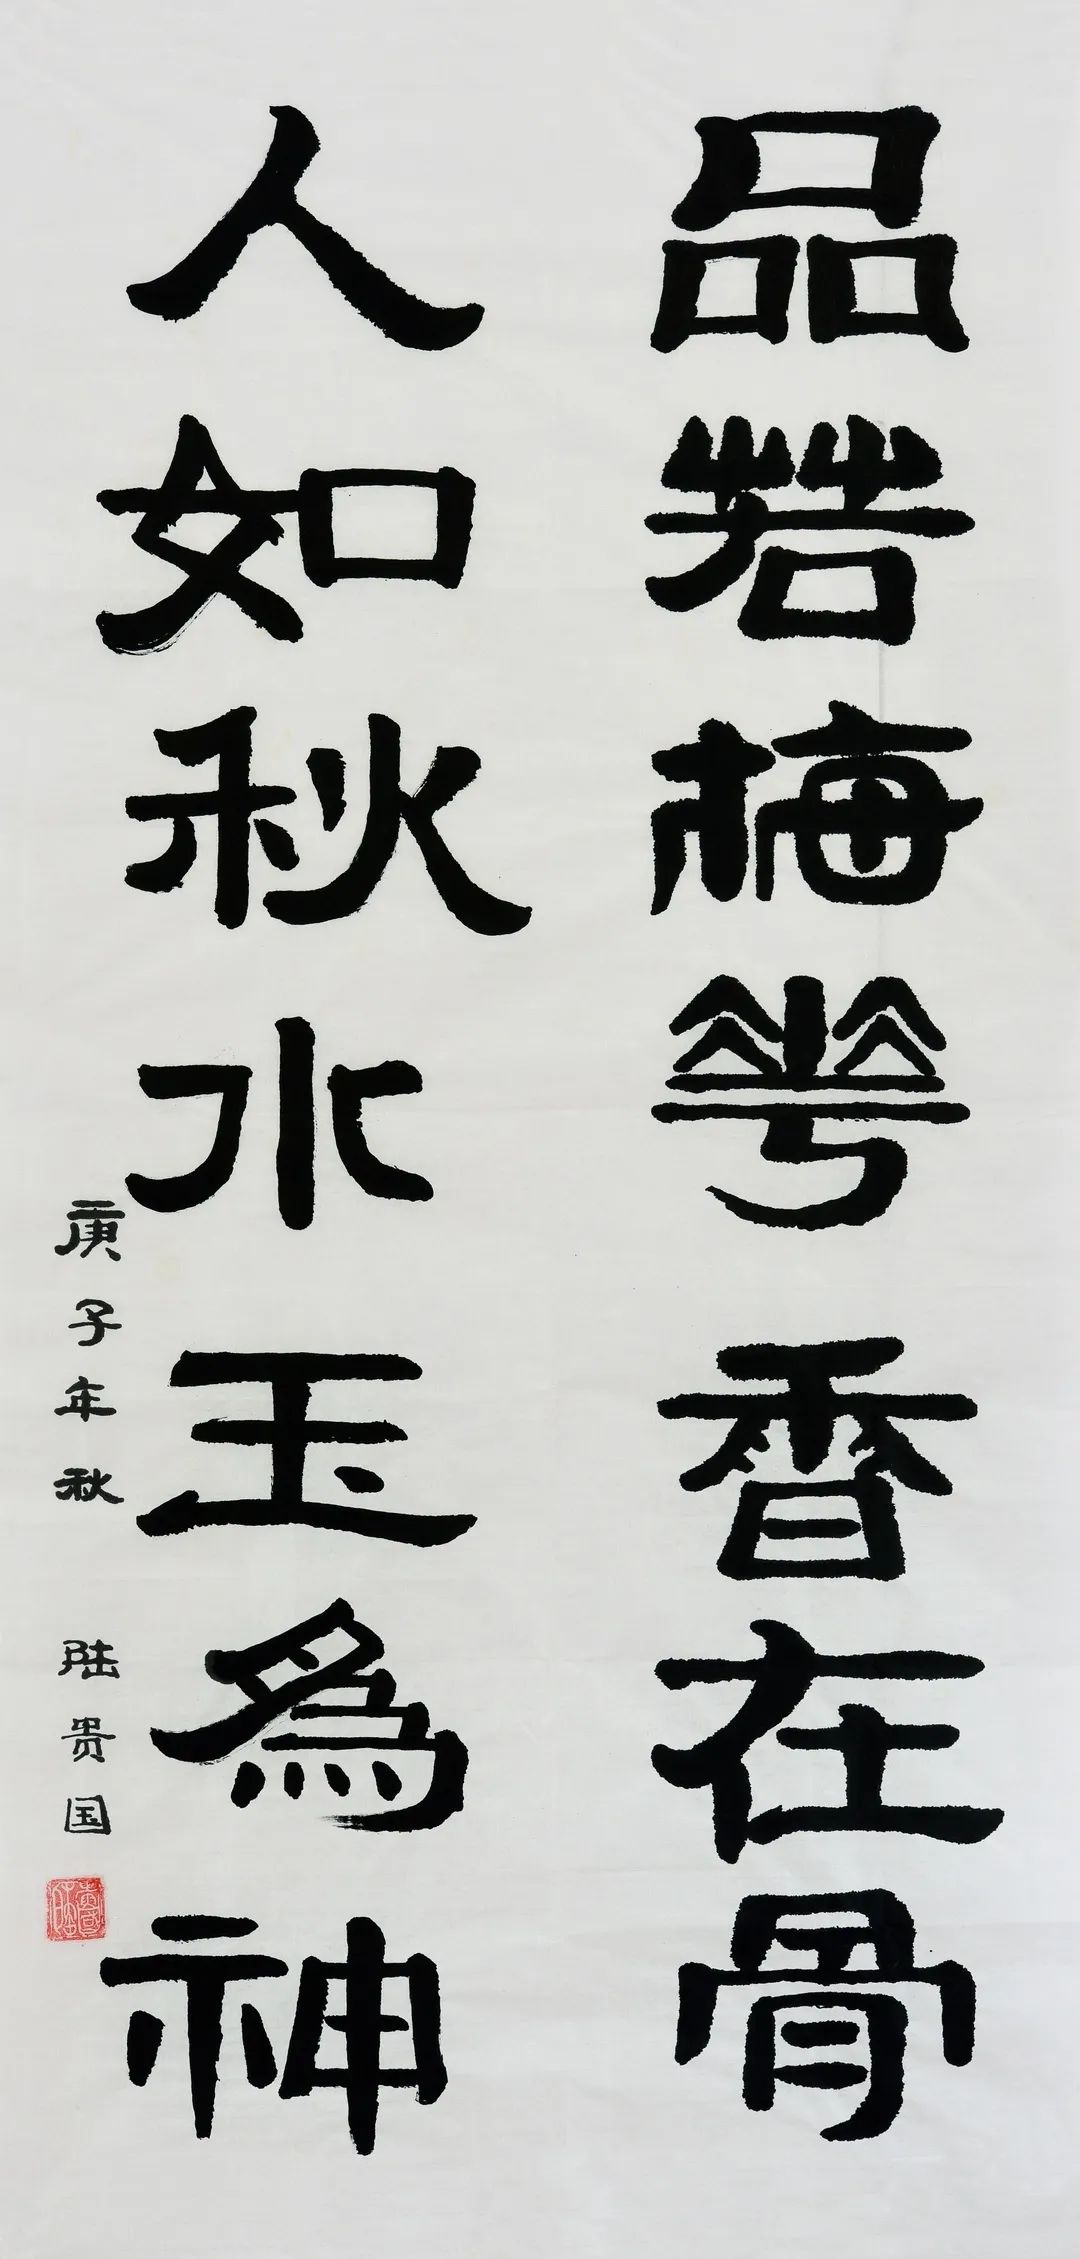 品若梅華香在骨
人如秋水玉為神
庚子年秋 陆贵国